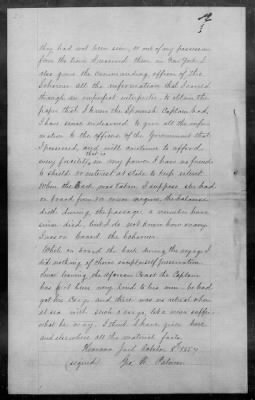 they had not been seen, or out of my possession
from the time I received them in New York. I
also gave the commanding officer of the
Dolphin all the information that I could
through an imperfect interpreter to obtain the
paper that I knew the Spanish Captain had.
I have since endeavored to give all the infor-
mation to the officers of the Government that
I possessed, and will continue to afford
every facility that is in my power. I have no friends
to shield or interest at stake to keep silent.
When the Bark was taken I suppose she had
on board from
died during the passage. a number have
since died, but I do not know how many
I was on board the
While on board the bark during the voyage I
did nothing of choice save self preservation.
Since leaving the African Coast the Captain
has felt been very kind to his men he had
got his cargo and there was no retreat when
at sea with such a cargo like men suffer
what he may. I think I have given here
and elsewhere all the material facts.
Jail October 2d 1857
(signed) Geo. W.